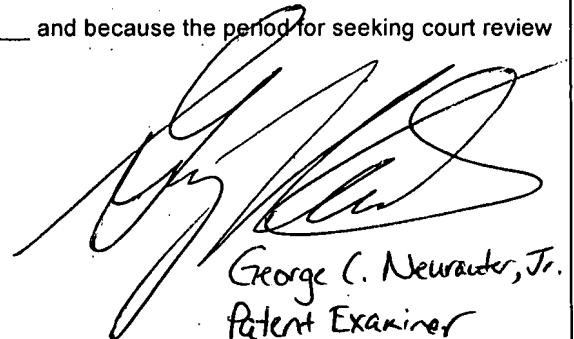 ___ and because the period for seeking court review
George C. Neurauter, Jr.
Patent Examiner